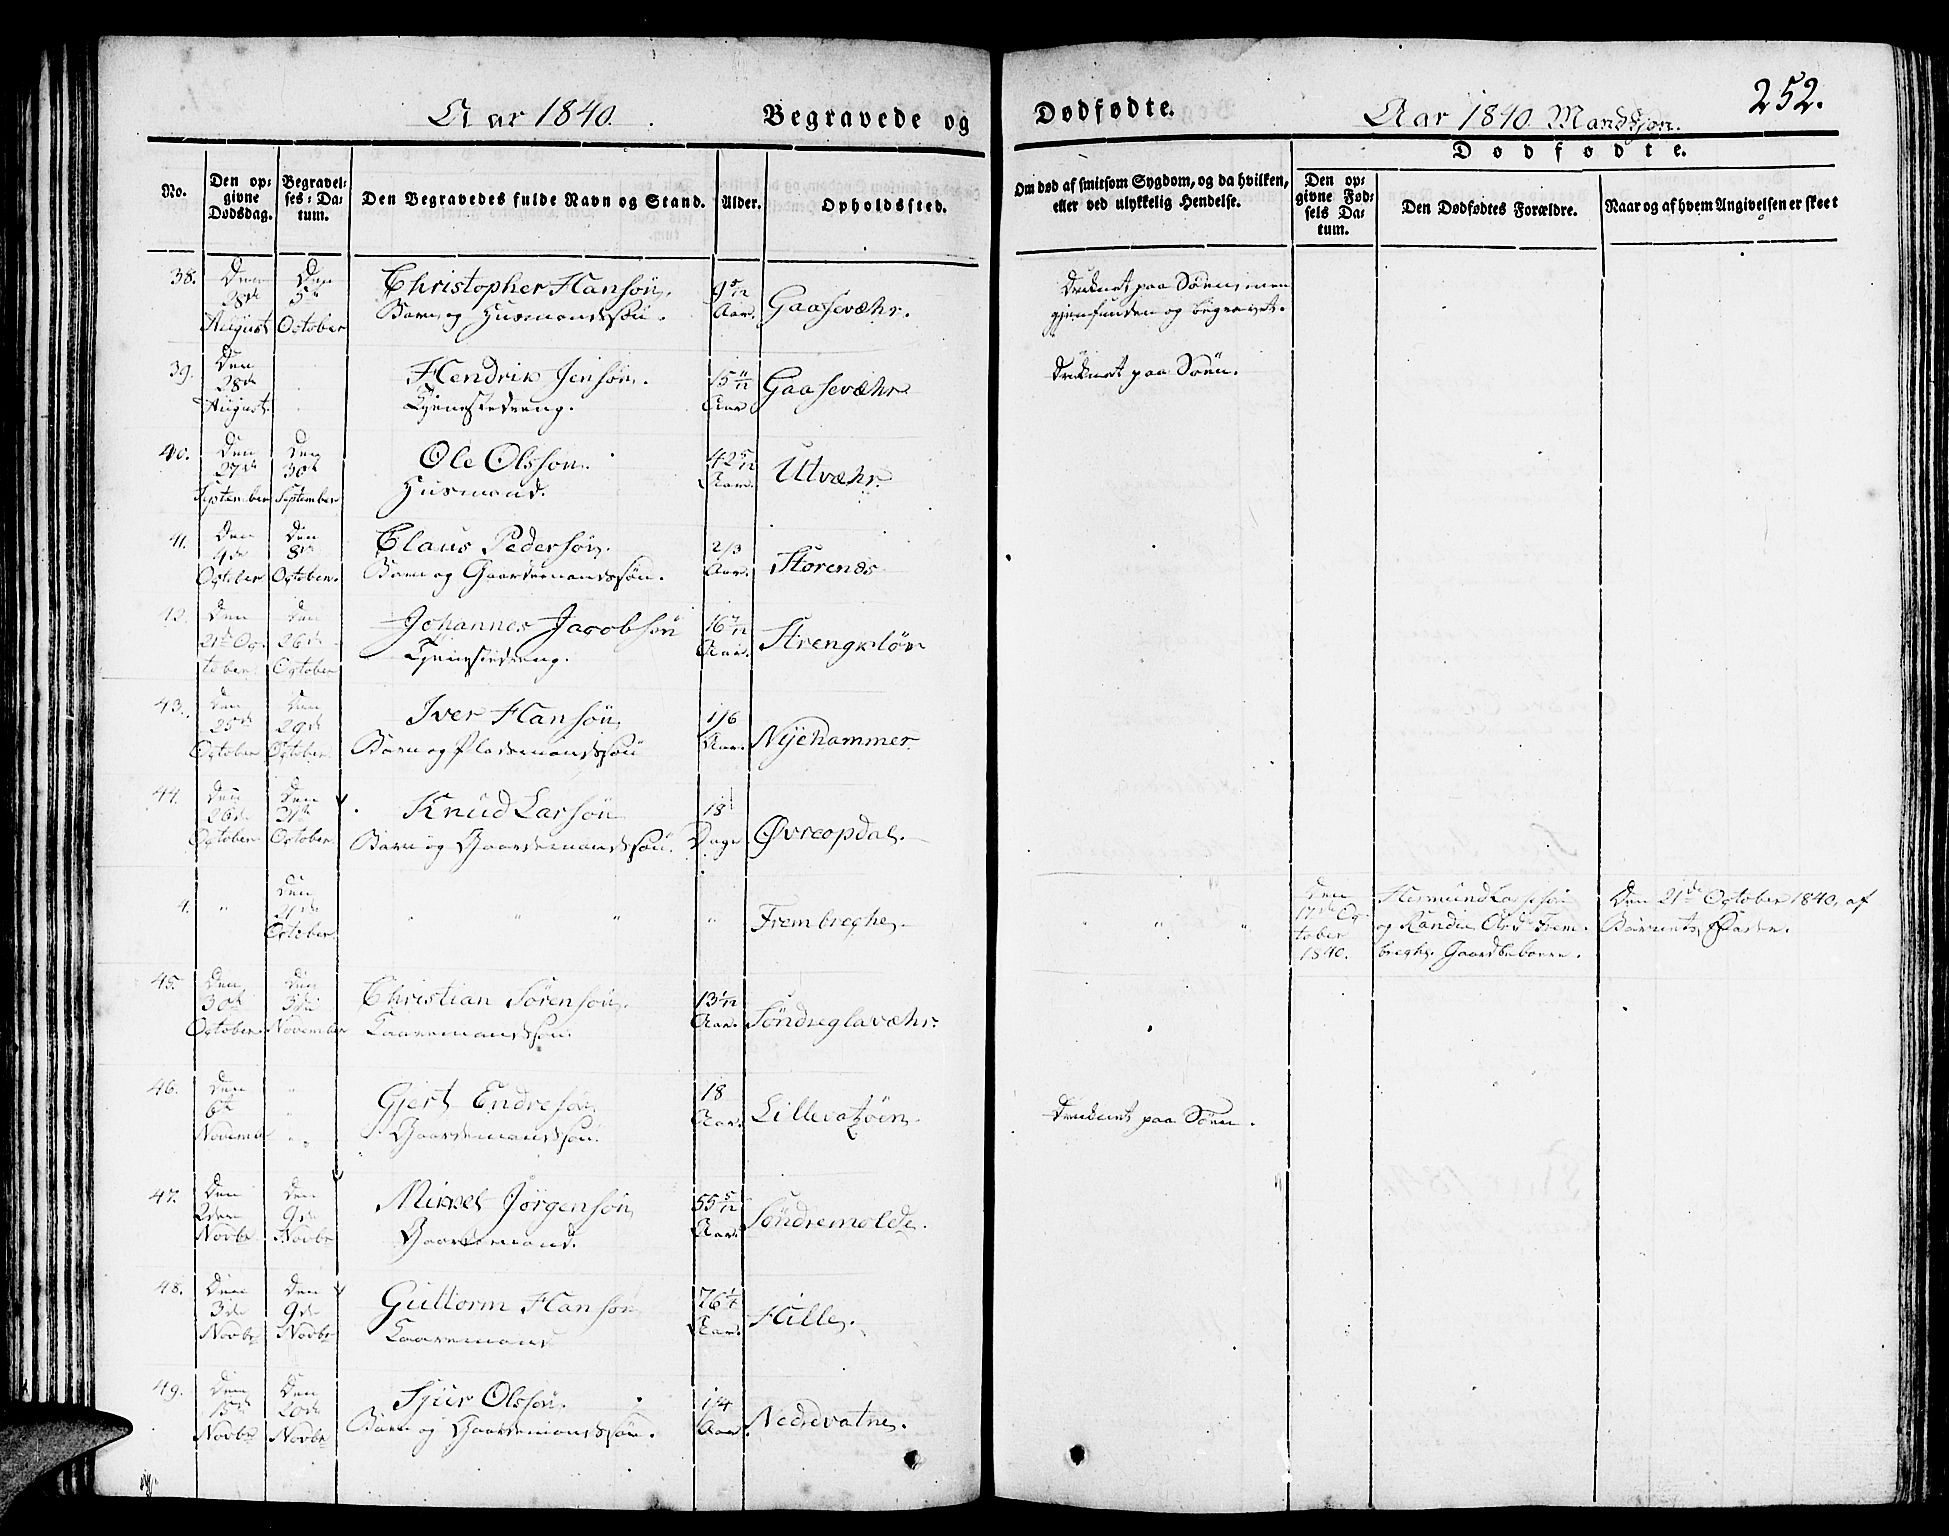 Aar 1840.
Begravede og
Dødfødte.
Aar 1840. Mandkjøn.
252.
No.
Den opgivne Dødsdag.
Begravelses-Datum.
Den Begravedes fulde Navn og Stand.
Alder.
Opholdssted.
Om død af smitsom Sygdom, og da hvilken, eller ved ulykkelig Hendelse.
Dødfødte.
Den opgivne Fødsels Datum.
Den Dødfødtes Forældre.
Naar og af hvem Angivelsen er skeet
38. Den 28de August Den 5te October Christopher Hansøn. 9 5/12 Aar. Gaasevæhr. Druknet paa Søen, men
Barn og Husmandssøn. gjenfunden og begravet.
39. Den 28de August. Hendrik Jensøn. 15 11/12 Aar Gaasevæhr Druknet paa Søen.
Tjenestedreng.
40. Den 27de September Den 30te September Ole Olssøn. 42 5/12 Aar. Utvæhr.
Husmand.
41. Den 4de October Den 8de October. Claus Pedersøn. 2/3 Aar. Storenes
Barn og Gaardemandssøn.
42. Den 21de October. Den 26de October Johannes Jacobsøn 16 7/12 Aar.
Tjenestedreng.
43. Den 25de October Den 29de October. Iver Hansøn 1/6 Aar. Nyehammer.
Barn og Pladsemandssøn
44. Den 26de October Den 31te October. Knud Larsøn 18 Dage Øvreopdal.
Barn og Gaardemandssøn.
4. " Den 21de October. " " " " Frembreghe. " " " Den 17de October 1840. Hermund Lassesøn Den 21de October 1840, af
og Randi Olsd. Frem- Barnets Fader.
breghe. Gaardbeboere.
45. Den 30te October. Den 3die November Christian Sørensøn. 13 1/12 Aar. Søndreglavæhr.
Kaaremandssøn.
46. Den 6te November " " " Gjert Endresøn 18 Aar. Lillevatzøen. Druknet paa Søen.
Gaardemandssøn.
47. Den 2den Novbr. Den 9de Novbr Mikkel Jørgensøn 55 5/12 Aar. Søndremolde.
Gaardemand.
48. Den 3de Novbr Den 9de Novbr Guttorm Hansøn 76 Aar. Hille.
Kaaremand
49. Den 15de Novbr Den 20de Novbr Sjur Olssøn. 1/4 Aar Nedrevatne.
Barn og Gaardemandssøn.